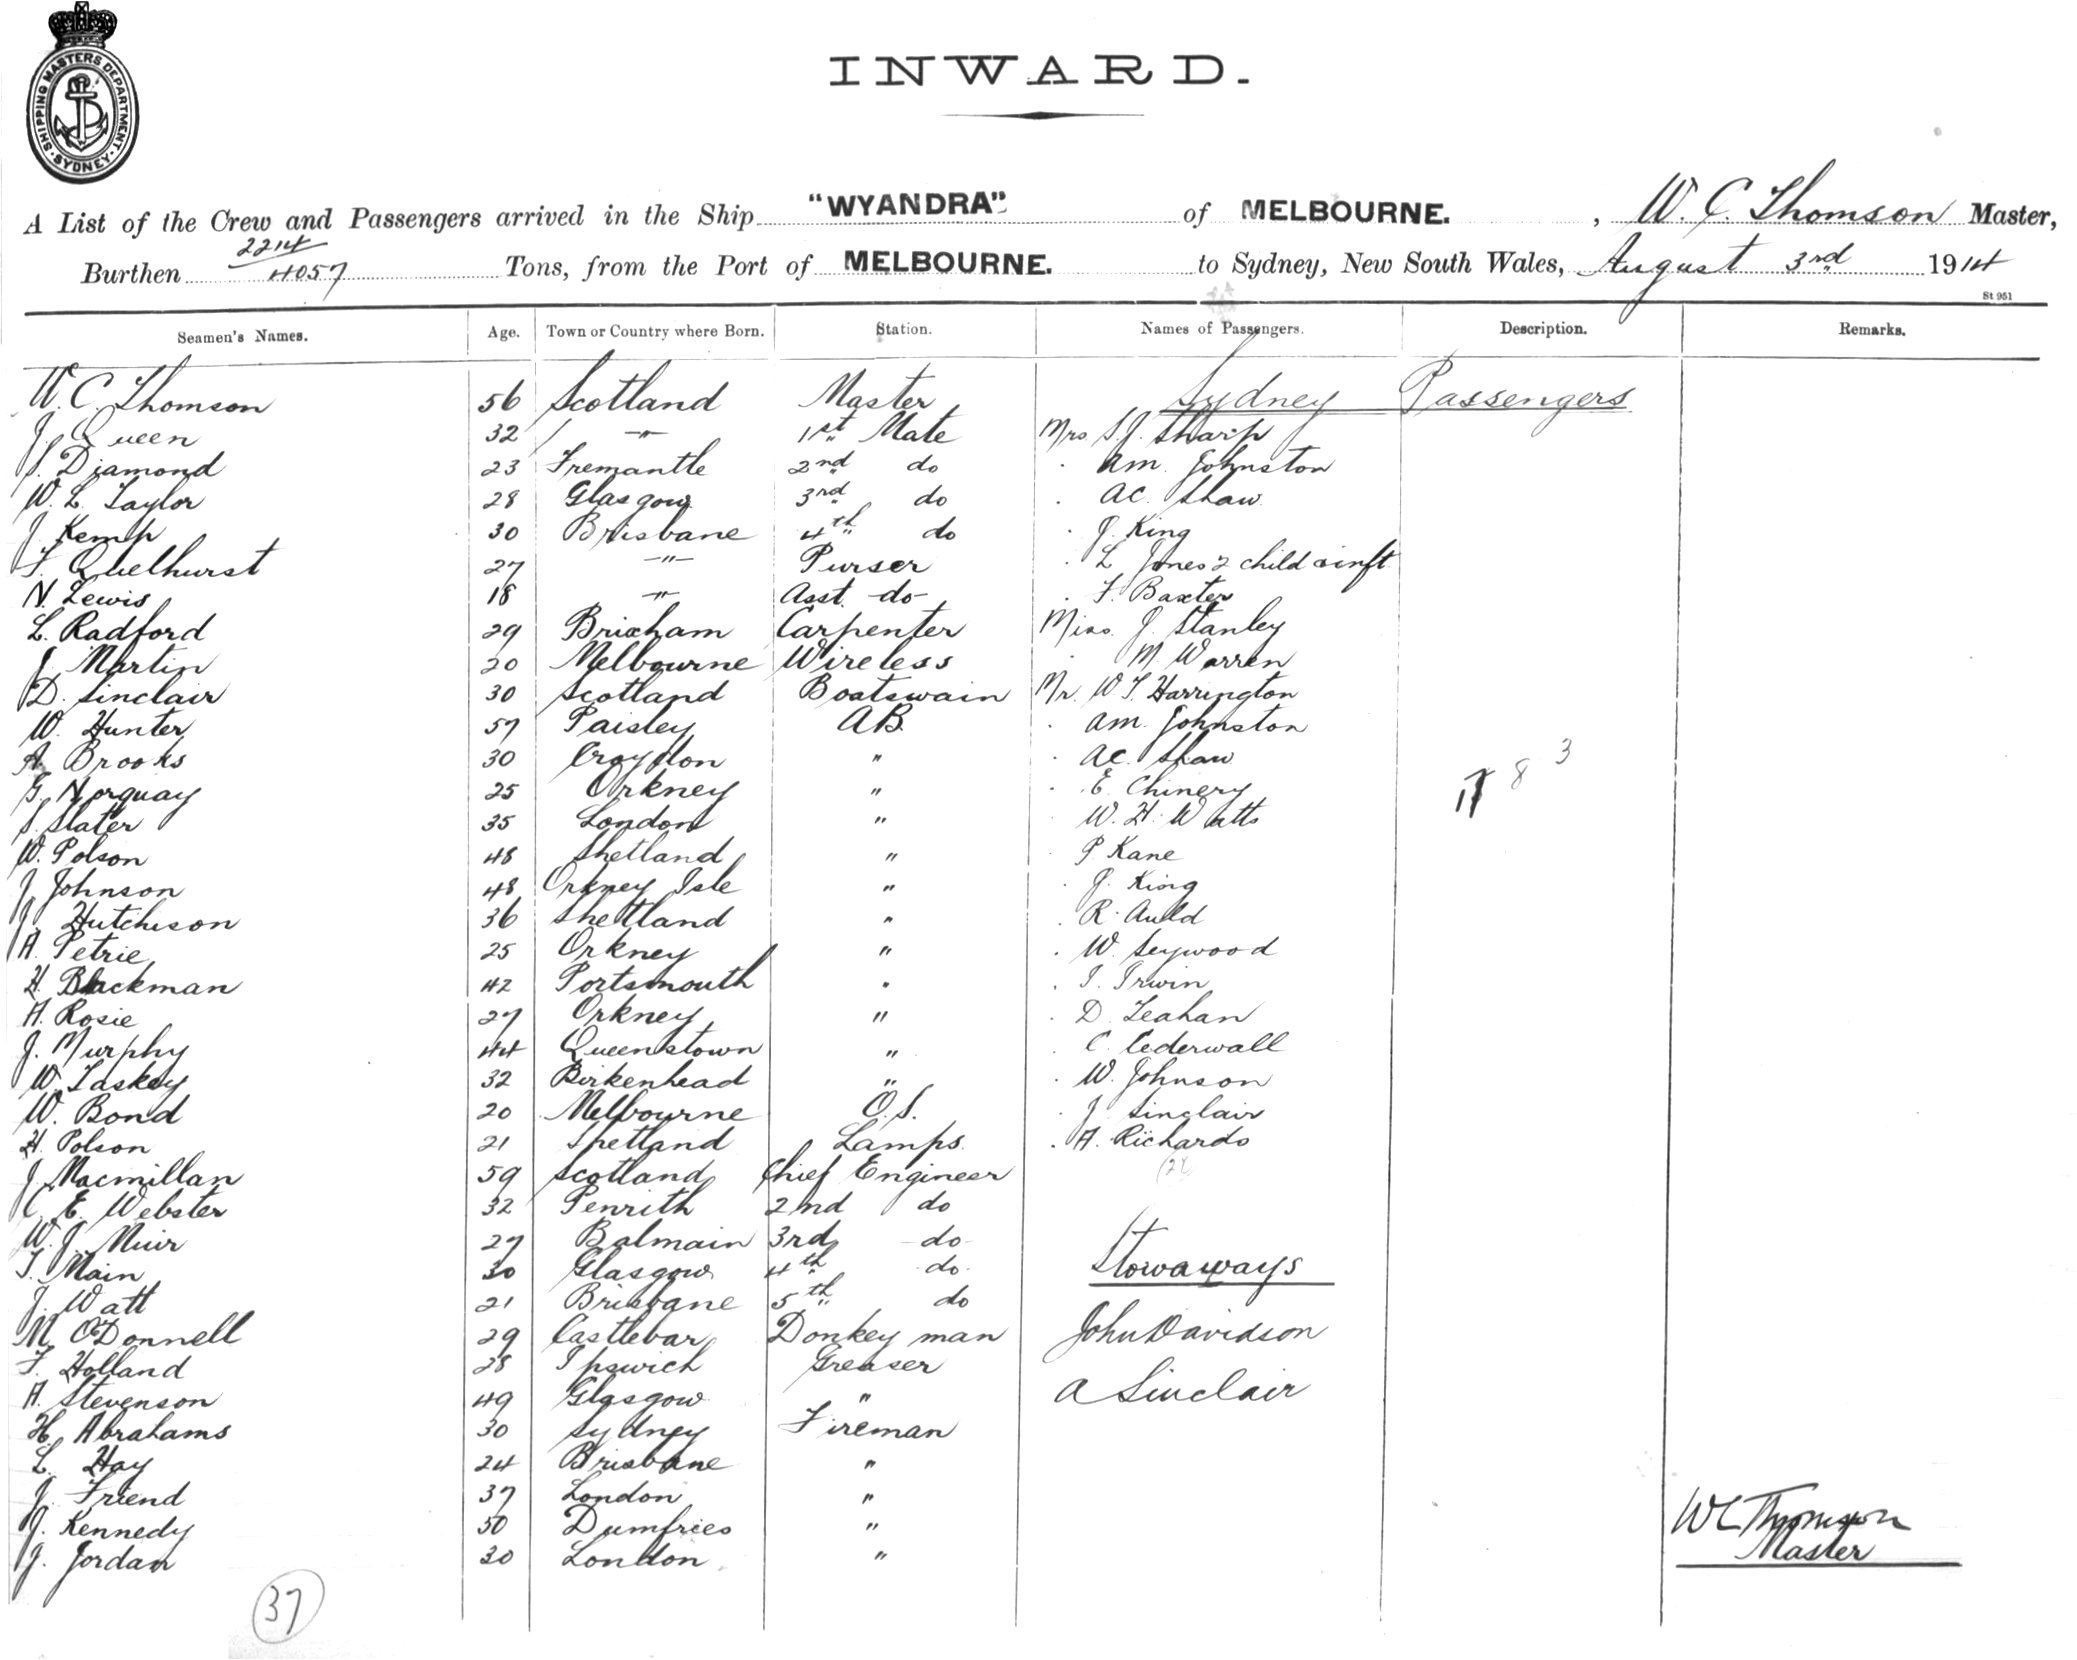 SHIPPING MASTERS DEPARTMENT · SYDNEY ·
INWARD.
A List of the Crew and Passengers arrived in the Ship "WYANDRA" of MELBOURNE. , W. C. Thomson Master,
2214
Burthen 4057 Tons, from the Port of MELBOURNE. to Sydney, New South Wales, August 3rd 1914
St 951
Seamen's Names. Age. Town or Country where Born. Station. Names of Passengers. Description. Remarks.
W. C. Thomson 56 Scotland Master Sydney Passengers
J. Queen 32 —"— 1st Mate Mrs S. J. Sharp
S. Diamond 23 Fremantle 2nd do . AM. Johnston
W. L. Taylor 28 Glasgow 3rd do . AC. Shaw
J. Kemp 30 Brisbane 4th do . J. King
F. Quelhurst 27 —"— Purser . L Jones 2 child & inft
N. Lewis 18 —"— Asst. do . F. Baxter
L. Radford 29 Brixham Carpenter Miss. J. Stanley
J. Martin 20 Melbourne Wireless . M Warren
D. Sinclair 30 Scotland Boatswain Mr. W T Harrington
W. Hunter 57 Paisley AB. . AM. Johnston
A. Brooks 30 Croydon " . AC. Shaw
G. Norquay 25 Orkney " . E. Chinery
S. Slater 35 London " . W. H. Watts
W. Polson 48 Shetland " . P. Kane
J. Johnson 48 Orkney Isle " . J. King
J. Hutchison 36 Shetland " . R. Auld
A. Petrie 25 Orkney " . W. Seywood
H. Blackman 42 Portsmouth " . I. Irwin
A. Rosie 27 Orkney " . D. Leahan
J. Murphy 44 Queenstown " . C. Cederwall
W. Laskey 32 Birkenhead " . W. Johnson
W. Bond 20 Melbourne O.S. . J. Sinclair
H. Polson 21 Shetland Lamps . A. Richards
J. Macmillan 59 Scotland Chief Engineer
C. E. Webster 32 Penrith 2nd do
W. J. Muir 27 Balmain 3rd do
T. Main 30 Glasgow 4th do Stowaways
J. Watt 21 Brisbane 5th do
M. O'Donnell 29 Castlebar Donkey man John Davidson
F. Holland 28 Ipswich Greaser
A. Stevenson 49 Glasgow " A Sinclair
H. Abrahams 30 Sydney Fireman
L. Hay 24 Brisbane "
J. Friend 37 London "
J. Kennedy 50 Dumfries " W C Thomson
J. Jordan 30 London " Master
37